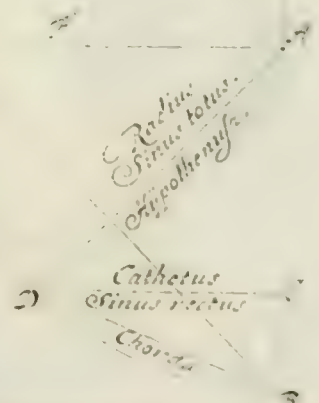 A
Radius
Sinus totus.
Hypothenus.
Cathetus
Sinus rectus
Chorda
D
B